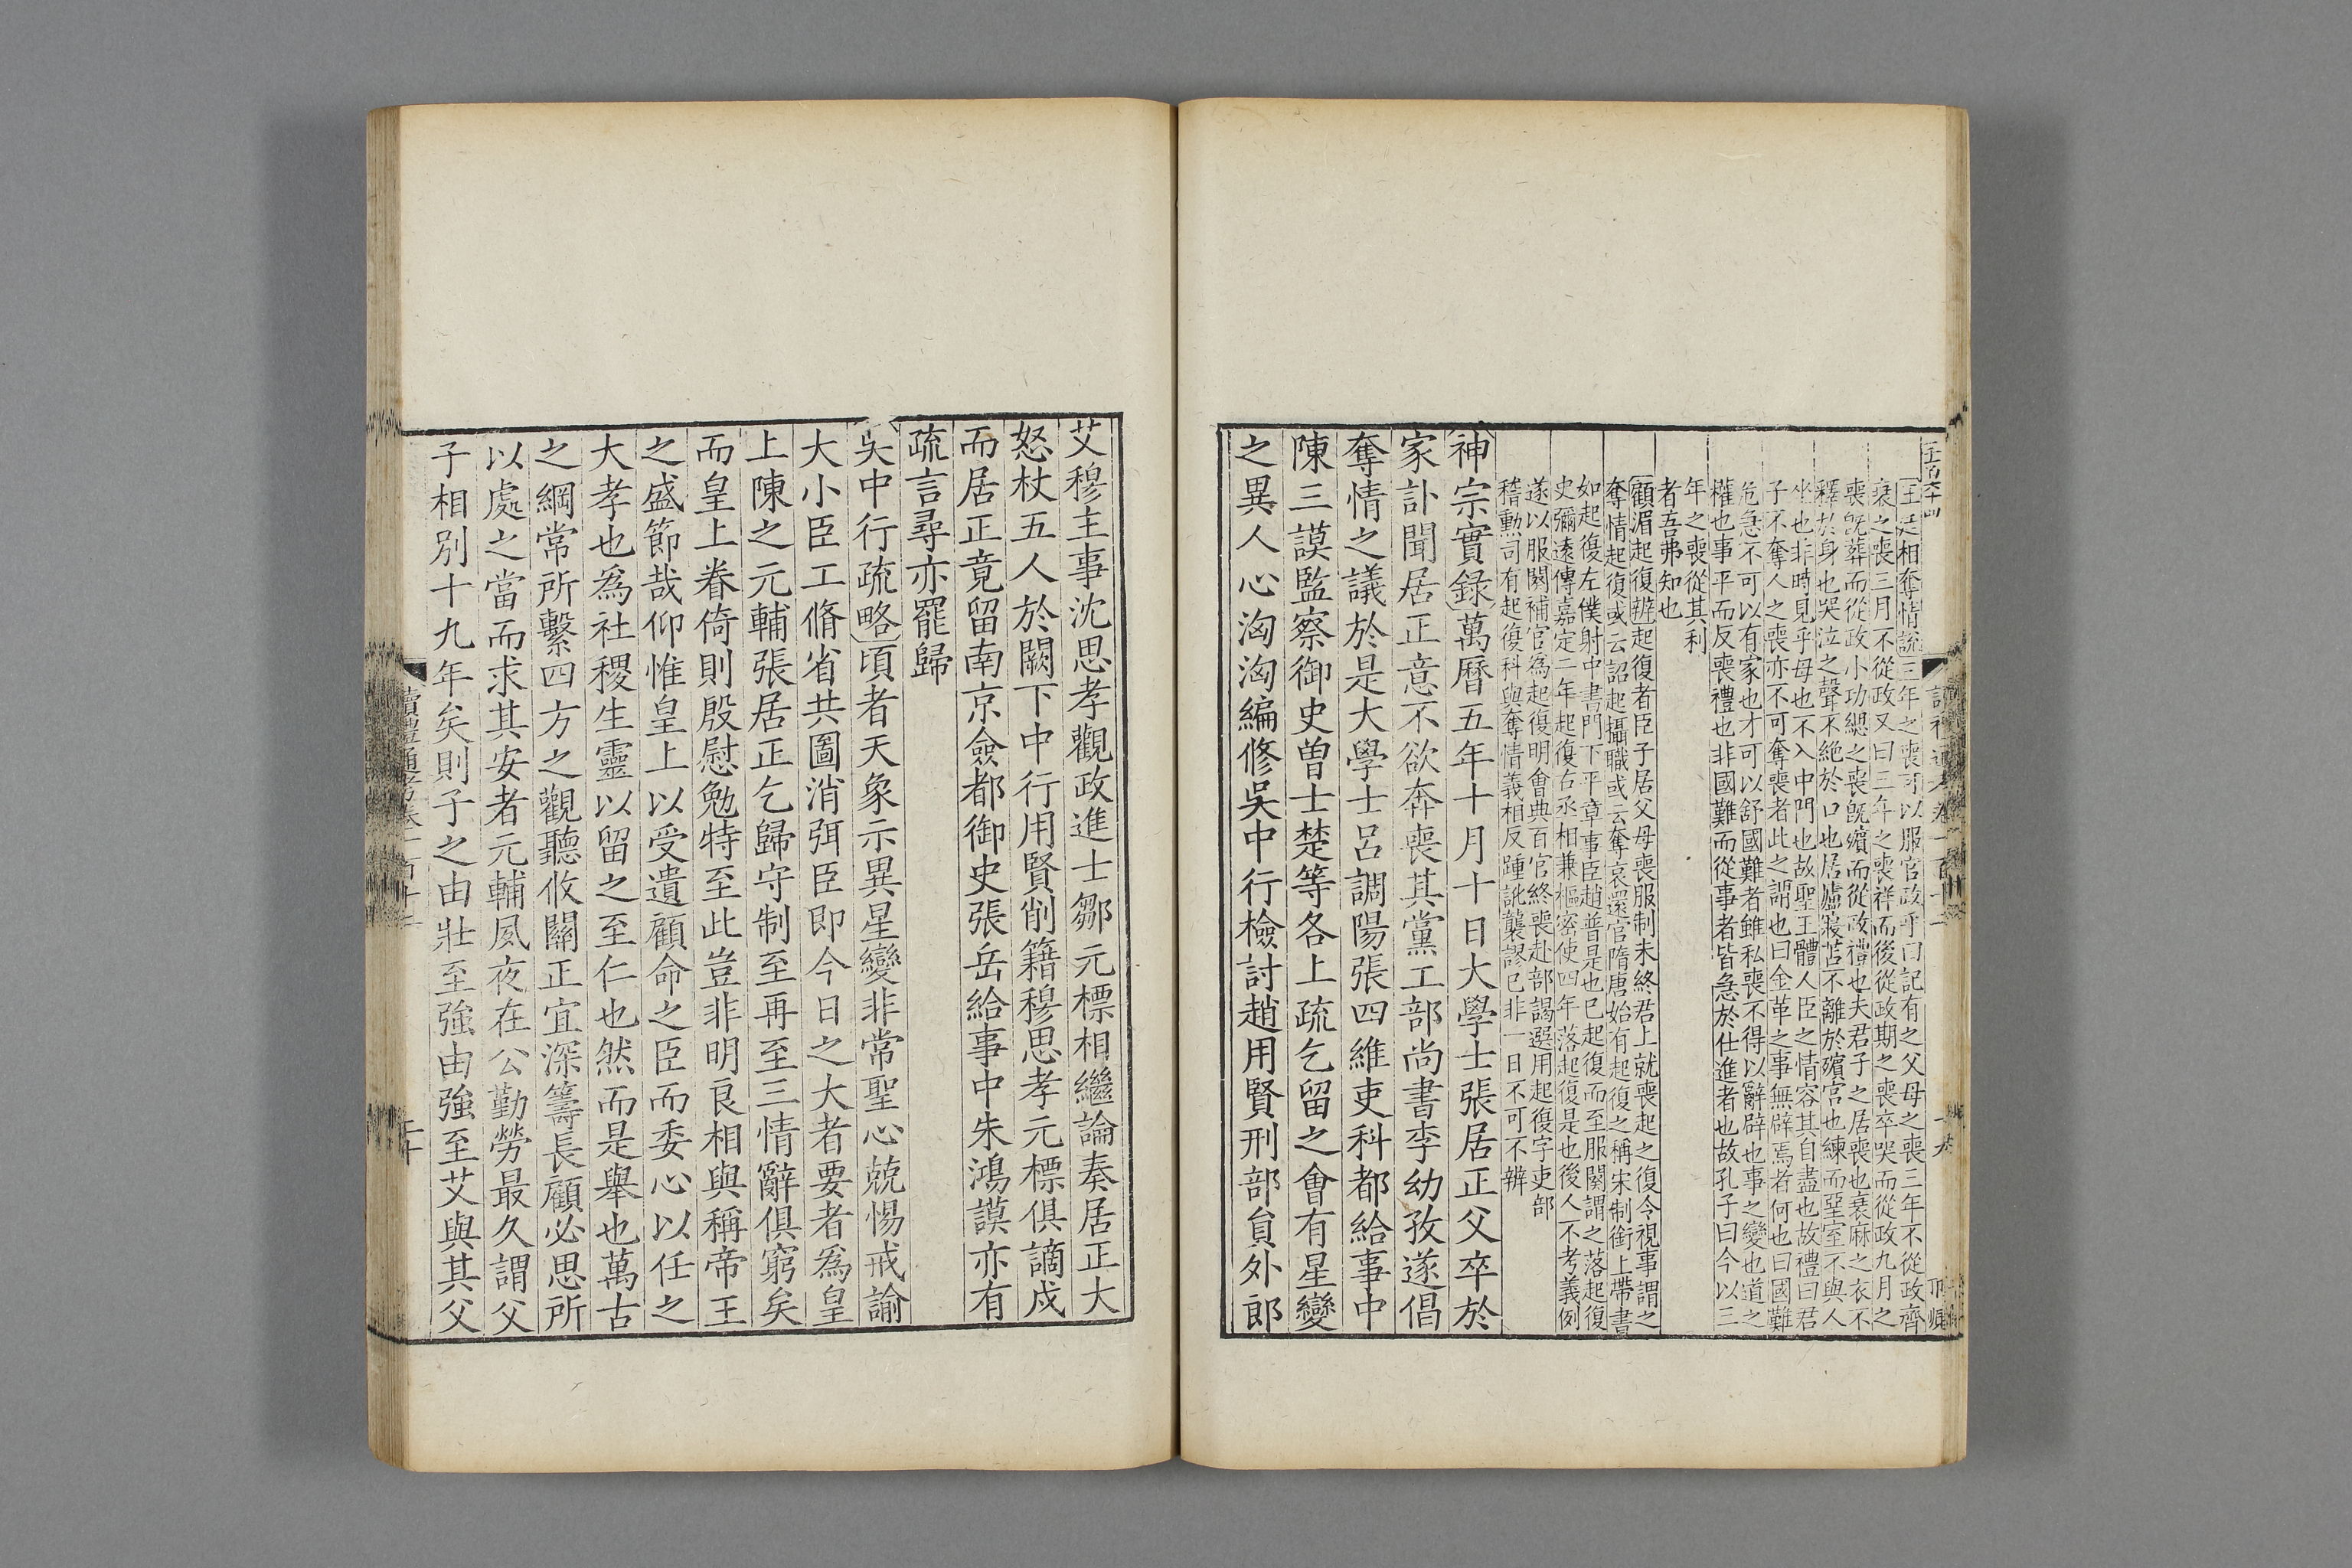 王廷相奪情說三年之喪可以服官政乎曰記有之父母之喪三年不從政齊
衰之喪三月不從政又曰三年之喪祥而後從政期之喪卒哭而從政九月之
喪既葬而從政小功緦之喪既殯而從政禮也夫君子之居喪也衰麻之衣不
釋於身也哭泣之聲不絕於口也居廬寢苫不離於殯宮也練而堊室不與人
坐也非時見乎母也不入中門也故聖王體人臣之情容其自盡也故禮曰君
子不奪人之喪亦不可奪喪者此之謂也曰金革之事無辟焉者何也曰國難
危急不可以有家也才可以舒國難者雖私喪不得以辭辟也事之變也道之
權也事平而反喪禮也非國難而從事者皆急於仕進者也故孔子曰今以三
年之喪從其利
者吾弗知也
顧湄起復辨起復者臣子居父母喪服制未終君上就喪起之復令視事謂之
奪情起復或云詔起攝職或云奪哀還官隋唐始有起復之稱宋制銜上帶書
如起復左僕射中書門下平章事臣趙普是也已起復而至服闋謂之落起復
史彌遠傳嘉定二年起復右丞相兼樞密使四年落起復是也後人不考義例
遂以服闋補官為起復明會典百官終喪赴部謁選用起復字吏部
稽勳司有起復科與奪情義相反踵訛襲謬已非一日不可不辨
神宗實錄萬曆五年十月十日大學士張居正父卒於
家訃聞居正意不欲奔喪其黨工部尚書李幼孜遂倡
奪情之議於是大學士呂調陽張四維吏科都給事中
陳三謨監察御史曾士楚等各上疏乞留之會有星變
之異人心洶洶編修吳中行檢討趙用賢刑部員外郎
艾穆主事沈思孝觀政進士鄒元標相繼論奏居正大
怒杖五人於闕下中行用賢削籍穆思孝元標俱謫戍
而居正竟留南京僉都御史張岳給事中朱鴻謨亦有
疏言尋亦罷歸
吳中行疏略頃者天象示異星變非常聖心兢惕戒諭
大小臣工脩省共圖消弭臣即今日之大者要者為皇
上陳之元輔張居正乞歸守制至再至三情辭俱窮矣
而皇上眷倚則殷慰勉特至此豈非明良相與稱帝王
之盛節哉仰惟皇上以受遺顧命之臣而委心以任之
大孝也為社稷生靈以留之至仁也然而是舉也萬古
之綱常所繫四方之觀聽攸關正宜深籌長顧必思所
以處之當而求其安者元輔夙夜在公勤勞最久謂父
子相別十九年矣則子之由壯至強由強至艾與其父